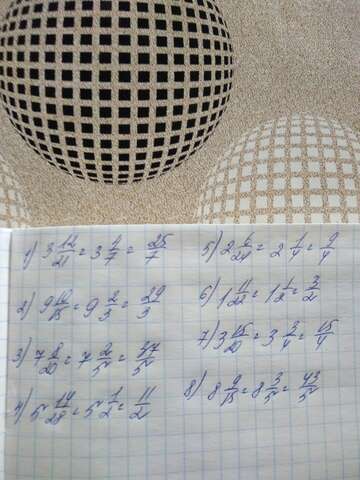 1) 3 12/21 = 3 4/7 = 25/7
2) 9 10/15 = 9 2/3 = 29/3
3) 7 8/20 = 7 2/5 = 37/5
4) 5 14/28 = 5 1/2 = 11/2
5) 2 6/24 = 2 1/4 = 9/4
6) 1 11/22 = 1 1/2 = 3/2
7) 3 15/20 = 3 3/4 = 15/4
8) 8 9/15 = 8 3/5 = 43/5